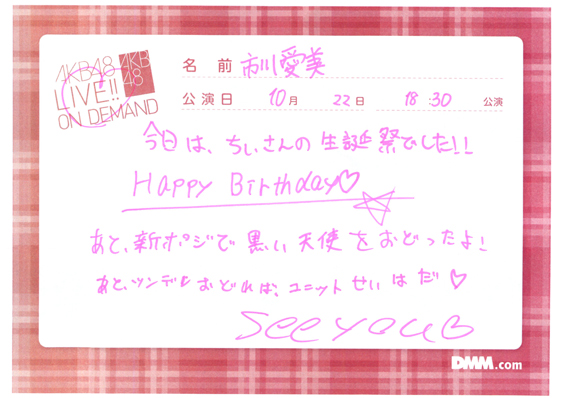 AKB48
LIVE!!
ON DEMAND
AKB
48
名前 市川愛美
公演日 10月 22日 18:30 公演
今日は、ちぃさんの生誕祭でした!!
Happy Birthday♡
あと、新ポジで黒い天使をおどったよ!
あと、ツンデレおどれば、ユニットせいはだ♡
see you
DMM.com